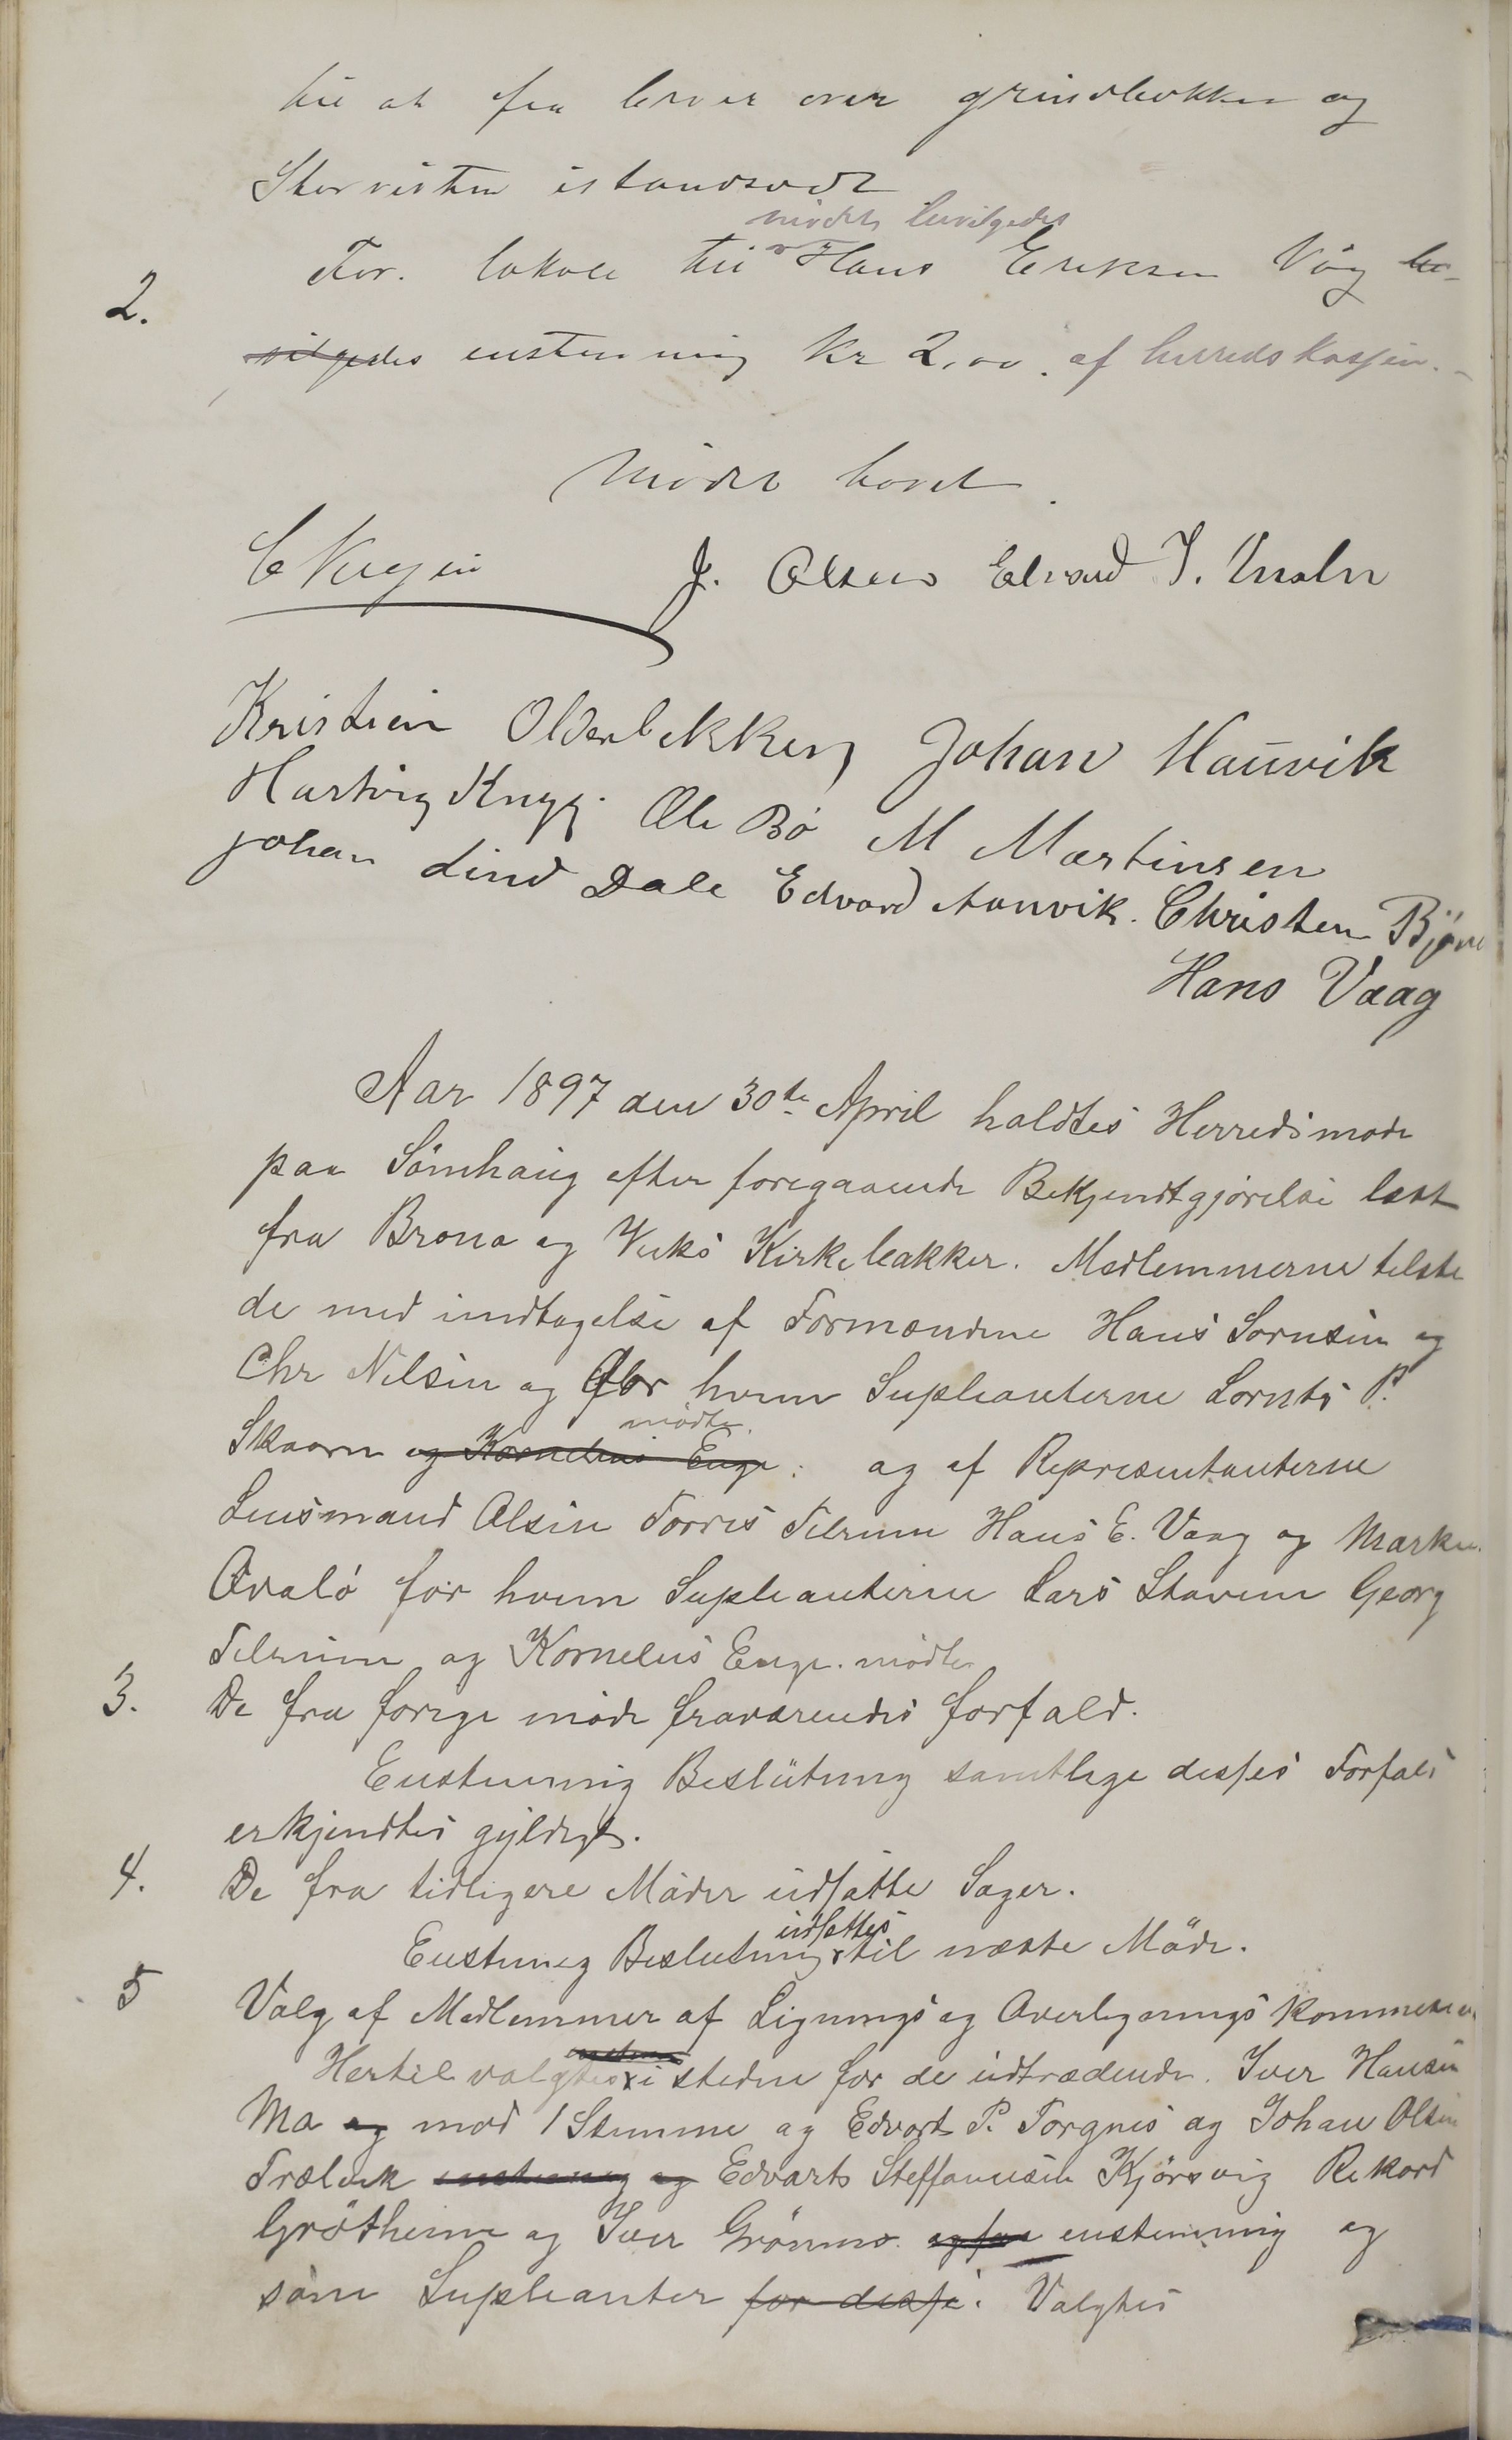 til at faa broer over grindbækken og
Storvisten istandsadt
mødet bevilgedes
2. For lokale til Hans Eriksen Våg be-
vilgedes enstemmig Kr 2,00. af herredskassen.
Mødet hævet.
J. Olsen Edvard I.
Kristian Olderbekken Johan Haŭvik
Hartvig Knyg. Ole Bø M Martinsen
Johan Lind Dale Edvard Aanvik. Christen Bjørn
Hans Vaag
Aar 1897 den 30te April holdtes Herredsmøde
paa Sømhaug efter foregaaende Bekjendtgjørelse læst
fra Brønø og Veks Kirkebakker. Medlemmerne tilste
de med undtagelse af Formændene Hans Sørensen og
Chr Nilsen og for hvem Supleanterne Lornts P.
mødte.
Skaarn og Kornelius Enge. og af Representanterne
Lensmand Olsen Torris Tilrem Hans E. Vaag og Marku
Qvalø for hvem Supleanterne Lars Stavem Georg
Tilrem og Kornelius Enge. mødte
3. De fra forrige møde fraværendes forfald.
Enstemmig Beslutning samtlige disses Forfald
erkjendtes gyldigt.
4. De fra tidligere Møder udsatte Sager.
udsattes
Enstemig Beslutning til næste Møde.
5 Valg af Medlemmer af Lignings og Overligningskommision
Hertil valgtes i stedet for de udtrædende. Iver Hansen
Mo og mod 1 Stemme og Edvart P. Torgnes og Johan Olsen
Trælvik enstemmig og Edvart Steffansen Kjørsvig Rikard
Grøtheim og Iver Grønmo. og for enstemmig og
som Supleanter for disse. Valgtes